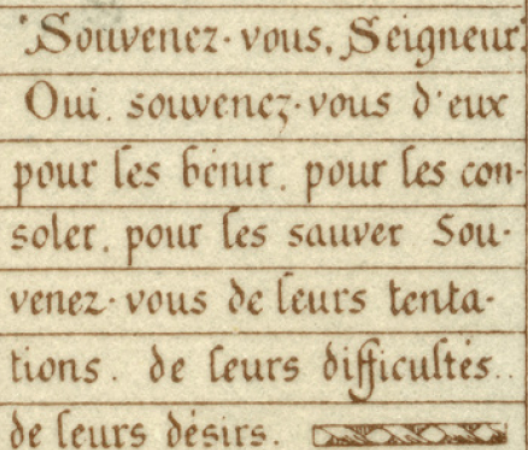 "Souvenez-vous, Seigneur
Oui, souvenez-vous d'eux
pour les bénir, pour les con-
soler, pour les sauver Sou-
venez-vous de leurs tenta-
tions, de leurs difficultés,
de leurs désirs.